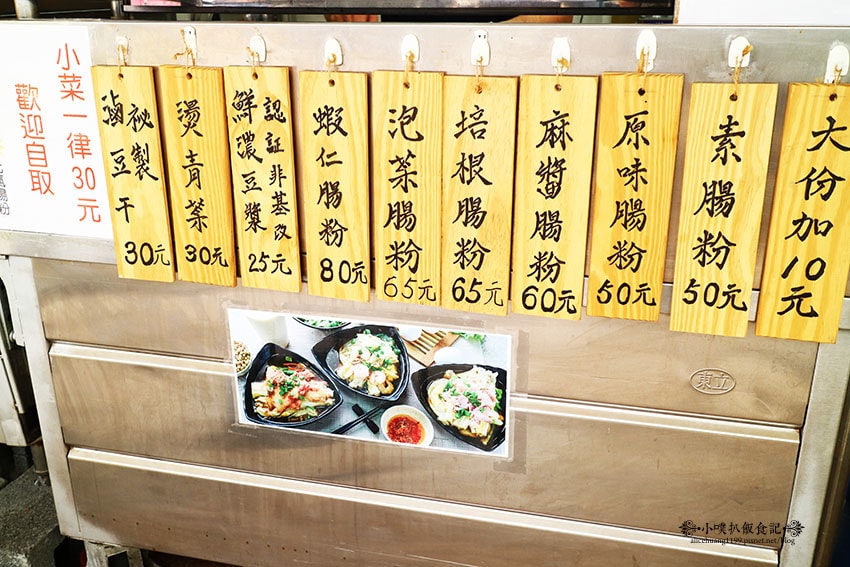 小菜一律30元
歡迎自取
大份加10元
素腸粉50元
原味腸粉50元
麻醬腸粉60元
培根腸粉65元
泡菜腸粉65元
蝦仁腸粉80元
認証非基改
鮮濃豆漿25元
燙青菜30元
祕製
滷豆干30元
東立
小噗扒飯食記